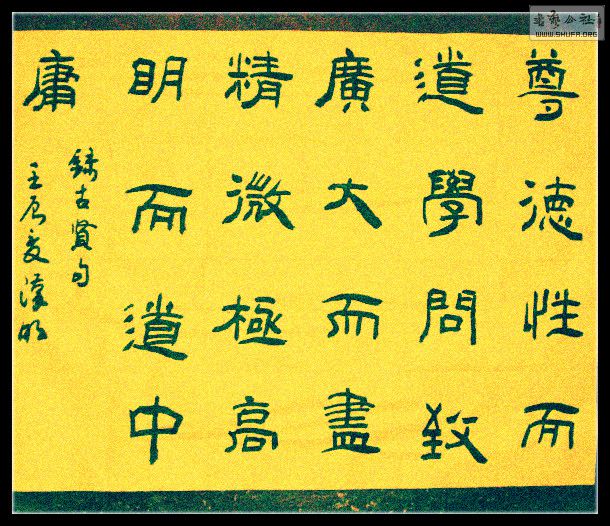 尊德性而
道學問致
廣大而盡
精微極高
明而道中
庸
錄古賢句
壬辰夏
書藝公社
WWW.SHUFA.ORG